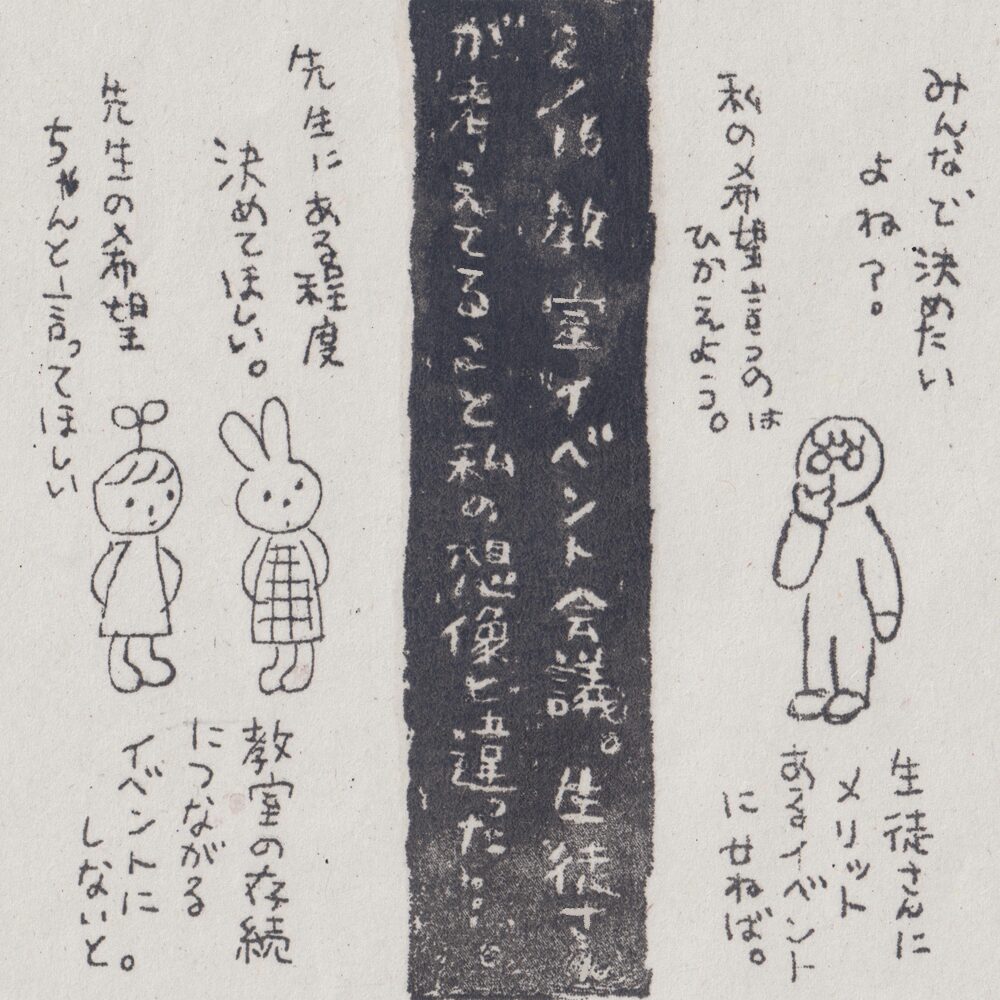 みんなで決めたい
よね？。
私の希望言うのは
ひかえよう。
生徒さんに
メリット
あるイベント
にせねば。
教室イベント会議。生徒さん
が考えてること私の想像と違った…。
先生にある程度
決めてほしい。
先生の希望
ちゃんと言ってほしい
教室の存続
につながる
イベントに
しないと。